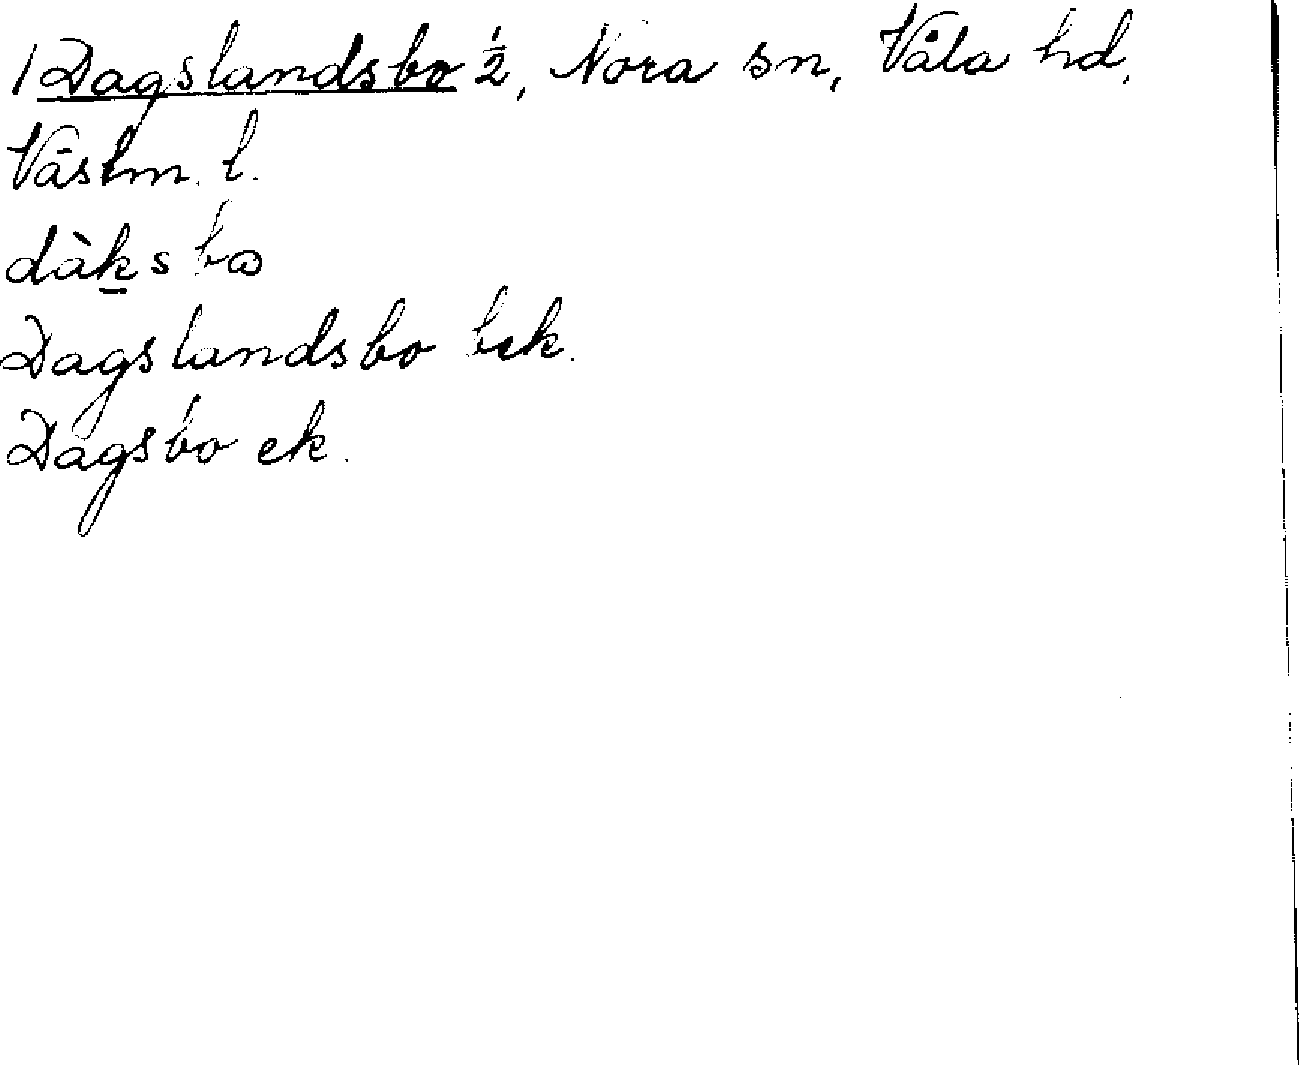 /Dagslandsbo ½, Nora sn, Våla hd,
Västm. l.
dàksbω
Dagslandsbo bek.
Dagsbo ek.